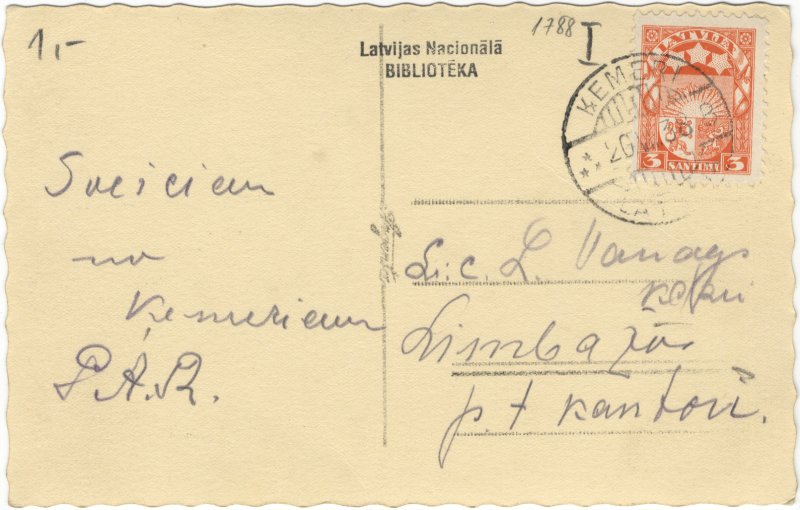 1,-
1788
I
Latvijas Nacionālā
BIBLIOTĒKA
LATVIJA
3 SANTIMI 3
ĶEMERI
Sveicieni
no
Ķemeriem
P.A.R.
L. Vanags
Limbažos
p. t kantorī.